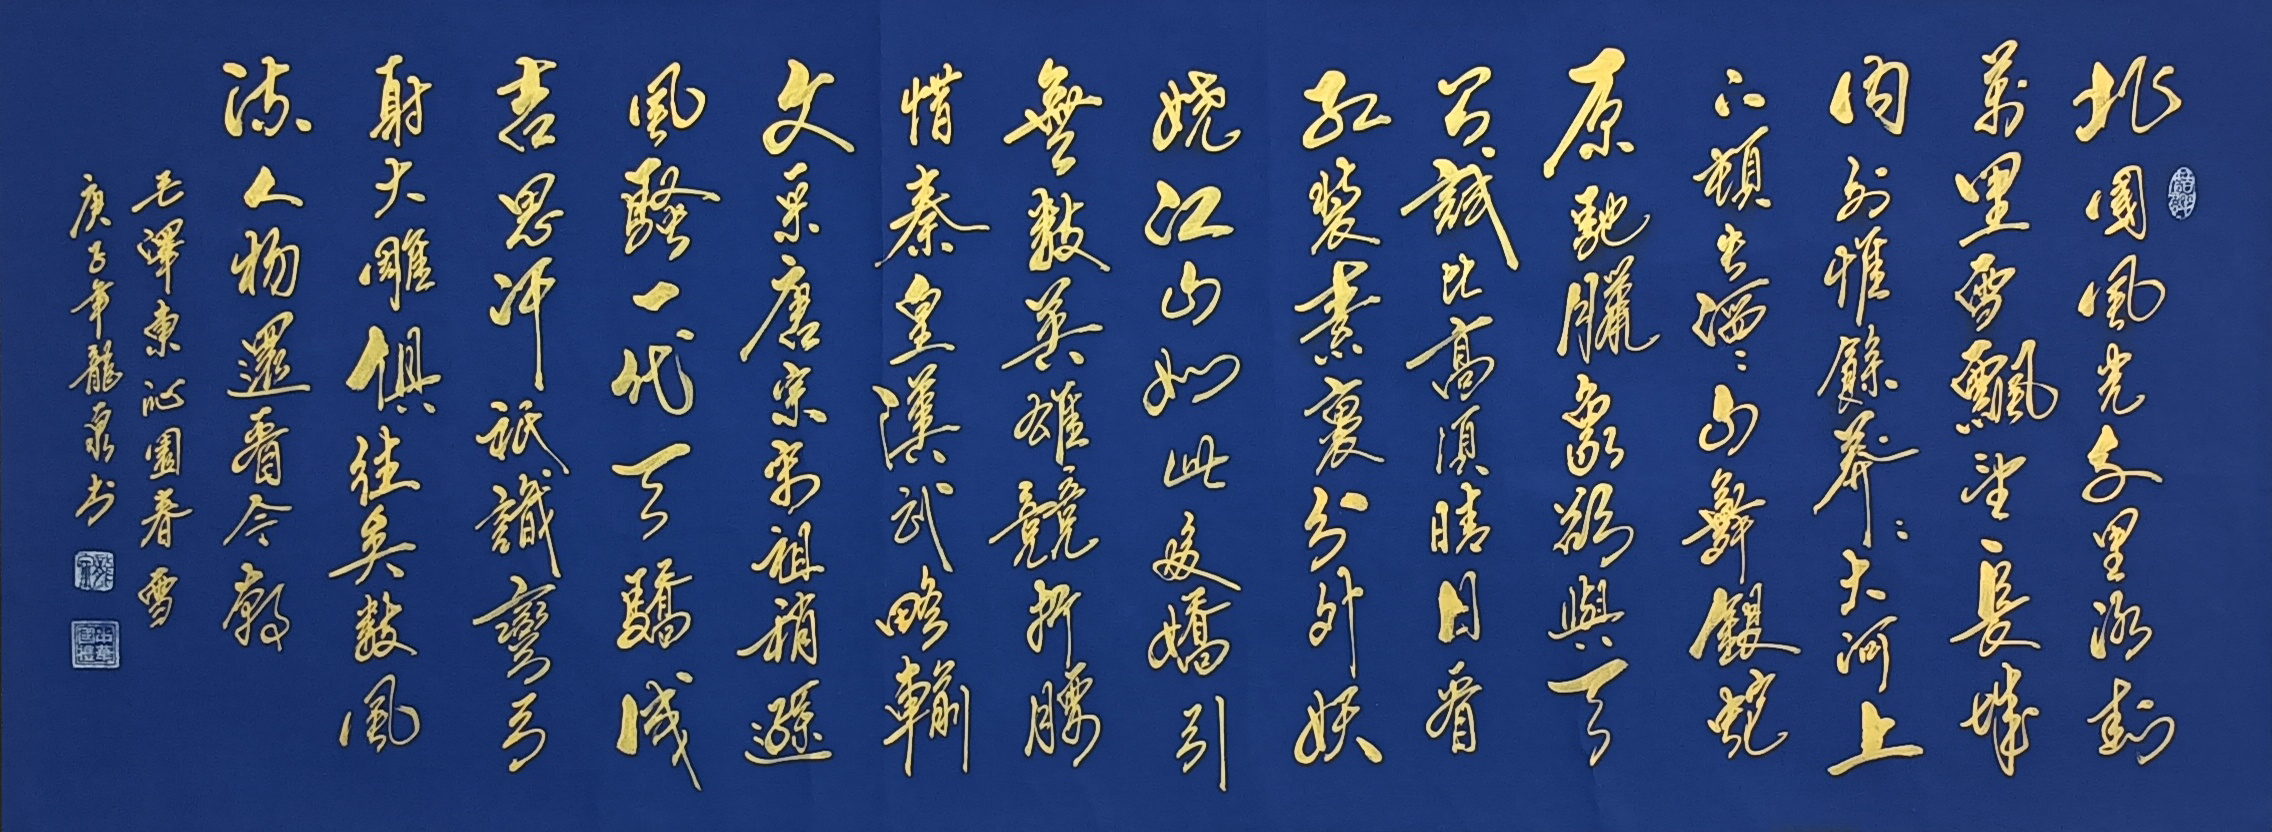 北國風光千里冰封
萬里雪飄望長城
内外惟餘莽〻大河上
下頓失滔〻山舞銀蛇
原馳臘象欲與天
公試比高須晴日看
紅裝素裹分外妖
嬈江山如此多嬌引
無數英雄競折腰
惜秦皇漢武略輸
文采唐宗宋祖稍遜
風騷一代天驕成
吉思汗祇識彎弓
射大雕俱往矣數風
流人物還看今朝
毛澤東沁園春雪
庚子年龍泉书